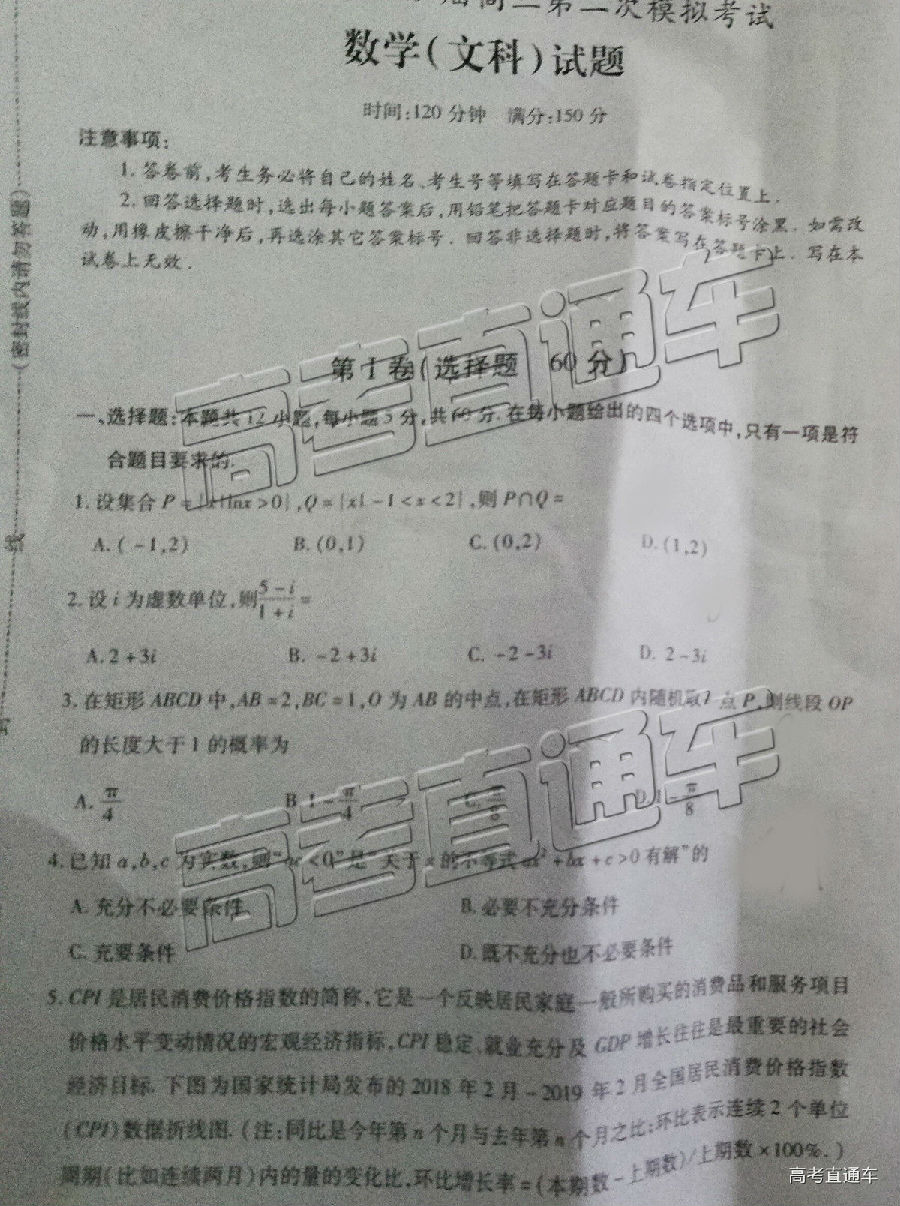 第二次模拟考试
数学(文科)试题
时间:120分钟 满分:150分
注意事项:
1.答卷前,考生务必将自己的姓名、考生号等填写在答题卡和试卷指定位置上.
2.回答选择题时,选出每小题答案后,用铅笔把答题卡对应题目的答案标号涂黑.如需改
动,用橡皮擦干净后,再选涂其它答案标号.回答非选择题时,将答案写在答题卡上.写在本
试卷上无效.
(密封线内请勿答题)
第Ⅰ卷(选择题 60分)
一、选择题:本题共12小题,每小题5分,共60分.在每小题给出的四个选项中,只有一项是符
合题目要求的.
1.设集合P={x|lnx>0},Q={x|-1<x<2},则P∩Q=
A.(-1,2) B.(0,1) C.(0,2) D.(1,2)
2.设i为虚数单位,则\frac{5-i}{1+i}=
A.2+3i B.-2+3i C.-2-3i D.2-3i
线
3.在矩形ABCD中,AB=2,BC=1,O为AB的中点,在矩形ABCD内随机取1点P,则线段OP
的长度大于1的概率为
A.\frac{π}{4} B.1-\frac{π}{4} C. D.1-\frac{π}{8}
4.已知a,b,c为实数,则"ac<0"是"关于x的不等式ax²+bx+c>0有解"的
A.充分不必要条件 B.必要不充分条件
C.充要条件 D.既不充分也不必要条件
5.CPI是居民消费价格指数的简称,它是一个反映居民家庭一般所购买的消费品和服务项目
价格水平变动情况的宏观经济指标,CPI稳定、就业充分及GDP增长往往是最重要的社会
经济目标.下图为国家统计局发布的2018年2月-2019年2月全国居民消费价格指数
(CPI)数据折线图.(注:同比是今年第n个月与去年第n个月之比;环比表示连续2个单位
周期(比如连续两月)内的量的变化比,环比增长率=(本期数-上期数)/上期数×100%.)
高考直通车
高考直通车
高考直通车